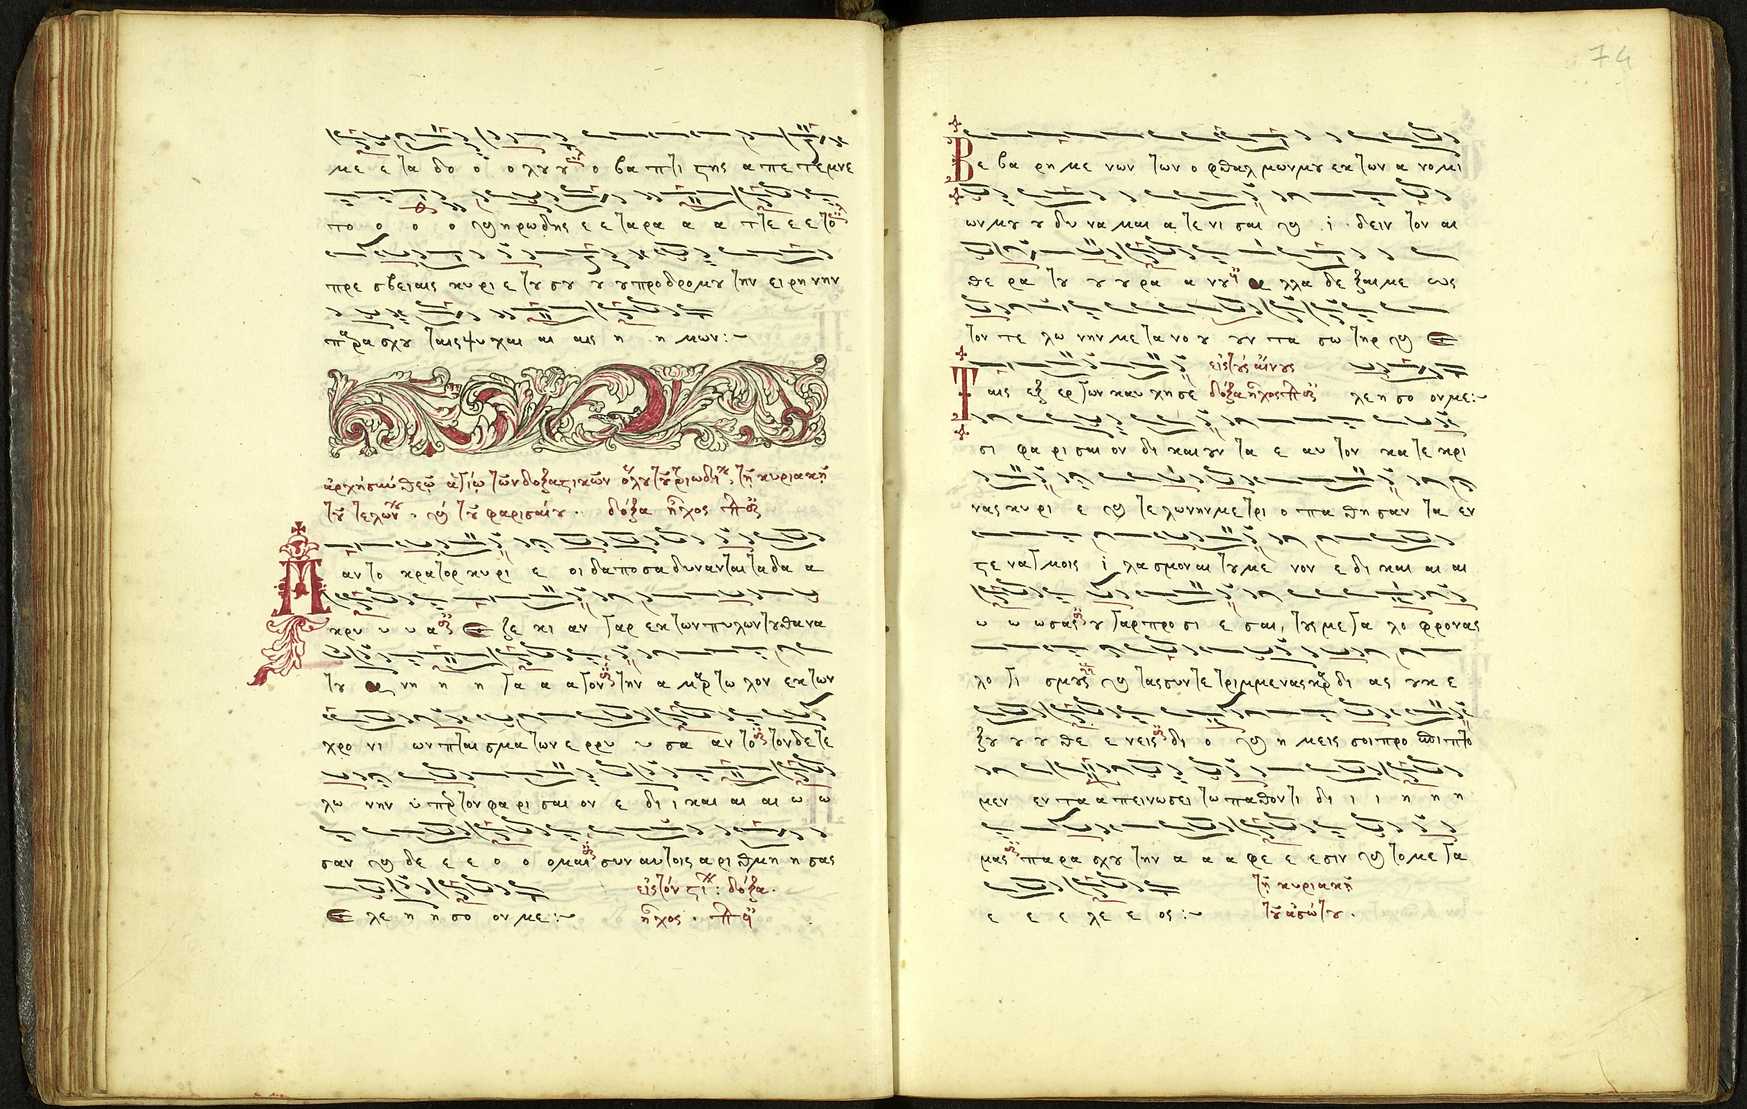 με ε τα δο ο ο λου ου ο βα πτι στης α πε τεμνε
το ο ο ο και ηρωδης ε ε ταρα α α τλε ε ε το
πρε σβειαις κυ ρι ε του σου ου ου προδρομου την ει ρη νην
παρα σχου ταις ψυ χαι αι αις η η μων:~
ἀρχὴ σὺν θεῷ ἁγίῳ τῶν δοξαστικῶν ὅλου τοῦ τριωδίου, τῇ κυριακῇ
τοῦ τελώνου · καὶ τοῦ φαρισαίου · δόξα ἦχος πλ δ
Παν το κρατορ κυ ρι ε οι δα ποσα δυνανται τα δα α
κρυ υ υ α Ε ζε κι αν γαρ εκ των πυλων του θα να
του α νη η η γα α α γον την α μαρ τω λον εκ των
χρο νι ων πται σμα των ε ρρυ υ σα αν το τον δε τε
λω νην υπερ τον φα ρι σαι ον ε δι ι και αι αι ω ω
σαν και δε ε ε ο ο ο μαι συν αυτοις α ρι θμη η σας
Ε λε η η σο ον με:~
εἰς τὸν στί: δόξα ·
ἦχος · πλ α
74
Βε βα ρη με νων των ο φθαλ μων μου εκ των α νο μι
ων μου ου δυ να μαι α τε νι σαι και ι δειν τον αι
θε ρα του ου ου ρα α νου α λλα δε ξαι με ως
τον τε λω νην με τα νο ου ουν τα σω τηρ και Ε
Ταις εξ ερ γων καυ χη σε εἰς τοὺς αἴνους
δόξα ἦχος πλ δ λε η σο ον με:~
σι φα ρι σαι ον δι και ουν τα ε αυ τον κα τε κρι
νας κυ ρι ε και τε λωνην με τρι ο πα θη σαν τα εν
στε ναγ μοις ι λασμον αι του με νον ε δι και αι αι
υ ω ω σας ου γαρ προσι ε σαι, τους με γα λο φρονας
λο γι σμους και τας συν τε τριμμενας καρ δι ας ουκ ε
ξου ου ου θε ε νεις δι ο και η μεις σοι προ σπι πτο
μεν εν τα α πεινωσει τω παθοντι δι ι ι η η η
μας παρα σχου την α α α φε ε εσιν και το με γα
ε ε ε λε ε ος:~
τῇ κυριακῇ
τοῦ ἀσώτου ·